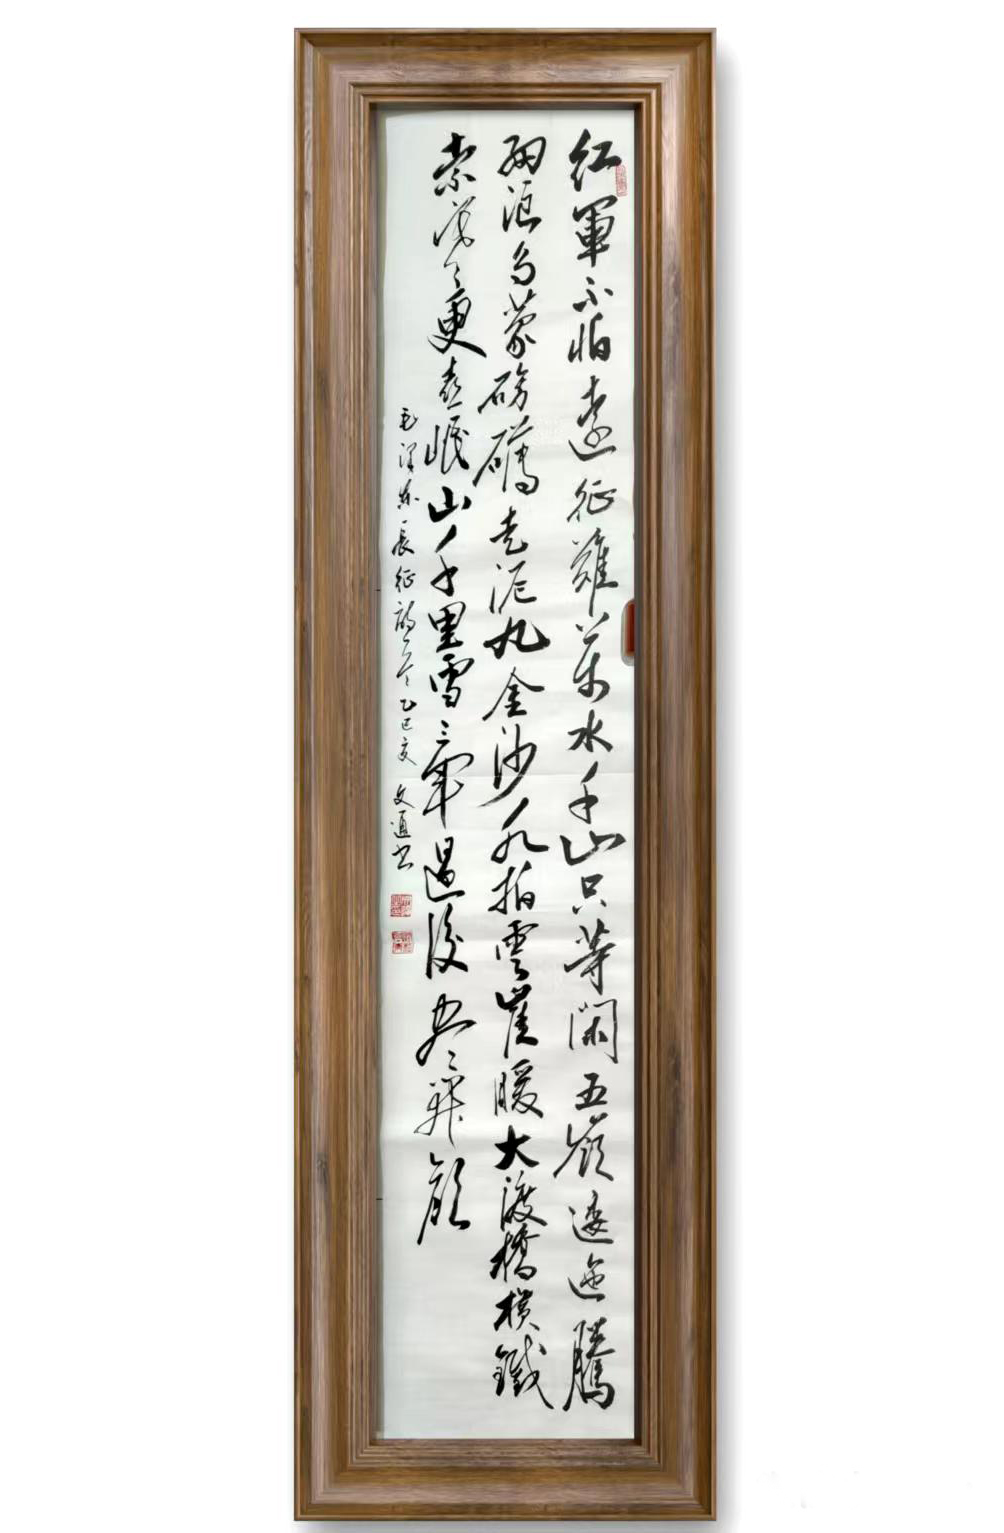 紅軍不怕遠征難萬水千山只等閑五嶺逶迤騰
細浪烏蒙磅礴走泥丸金沙水拍雲崖暖大渡橋橫鐵
索寒更喜岷山千里雪三軍過後盡開顏
毛澤東長征詩一首乙巳夏文通書